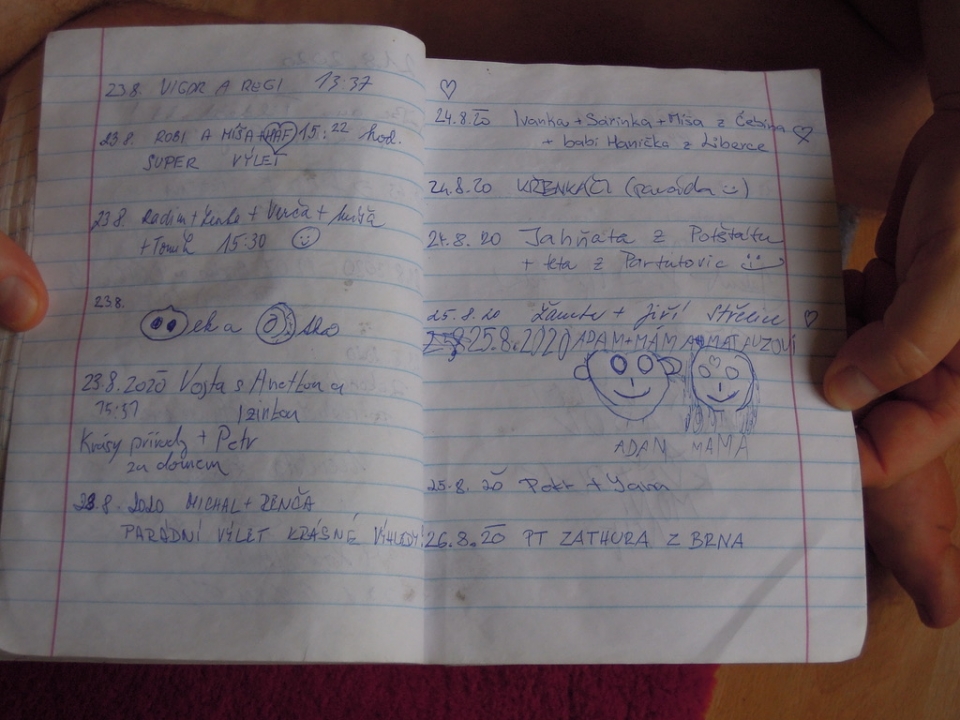 23.8. VIGOR A REGI 13:37
23.8. ROBI A MÍŠA+HAF 15:22 hod.
SUPER VÝLET
23.8. Radim+Lenka + Verča +
+Tomík 15:30
23.8.
23.8.2020 Vojta s Anetkou a
15:37 Izinkou
Krásy přírody + Petr
za domem
23.8. 2020 MICHAL+ZENČA
PARÁDNÍ VÝLET KRÁSNÉ VÝHLEDY!
24.8.20 Ivanka + Sárinka + Míša z Čebína
+ babi Hanička z Liberce
24.8.20 KŘENKÁČI (paráda :-)
24.8.20 Jahňata z Potštátu
+ teta z Partutovic
25.8.20 + Jiří Střelice
25.8.2020 ADAM+MÁMA MATOUZOVI
ADAM MAMA
25.8.20 Petr + Yana
26.8.20 PT ZATHURA Z BRNA